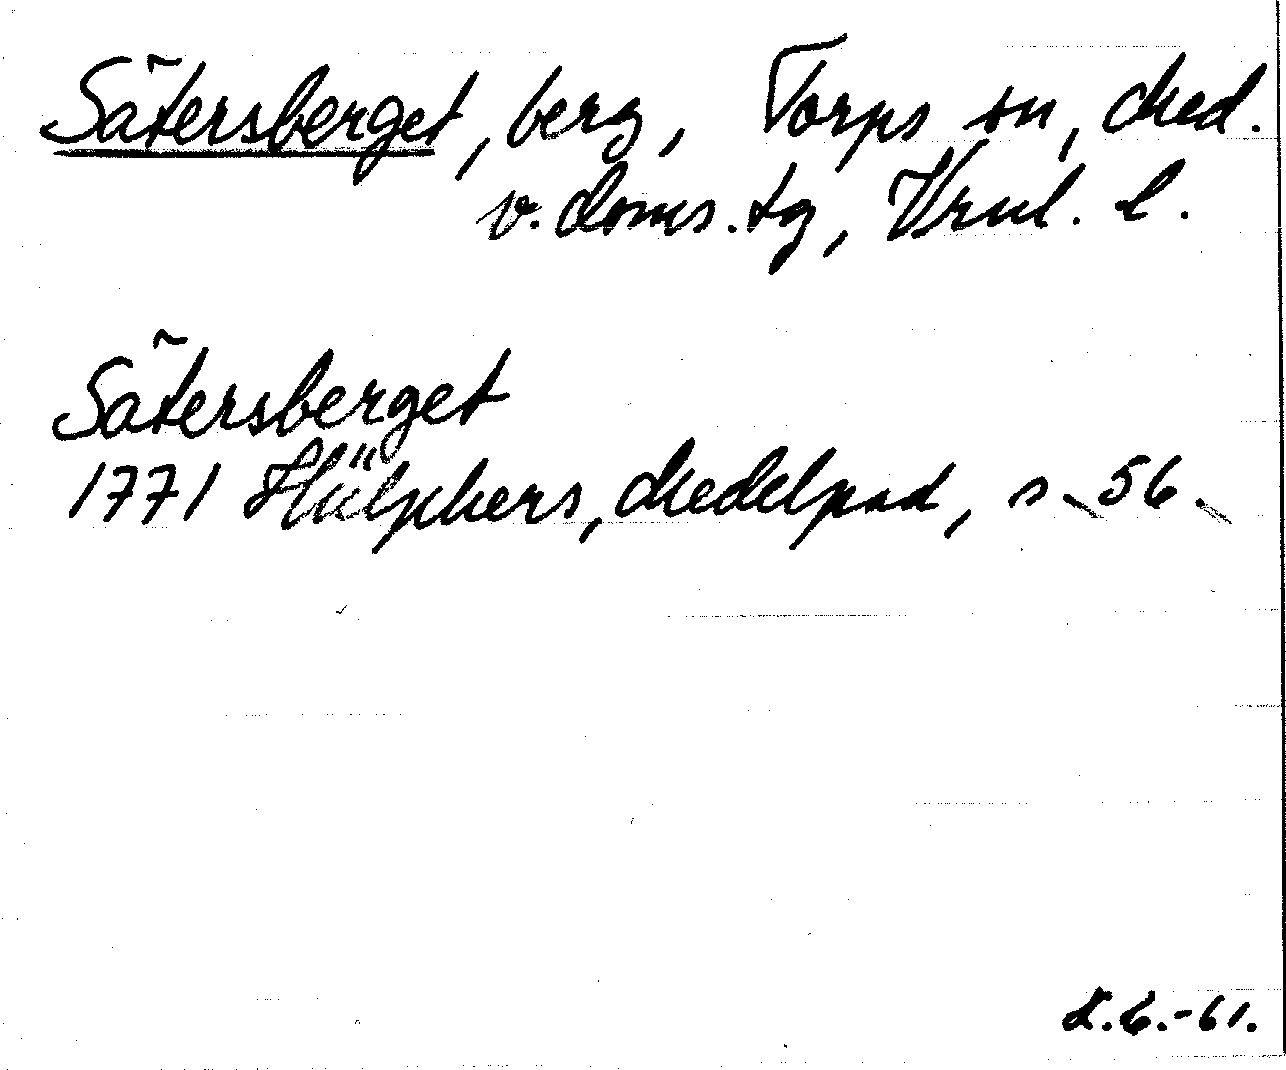 Sätersberget, berg, Torps sn, Med.
v. doms. tg, Vrnl. l.
Sätersberget
1771 Hülphers, Medelpad, s. 56.
-61.